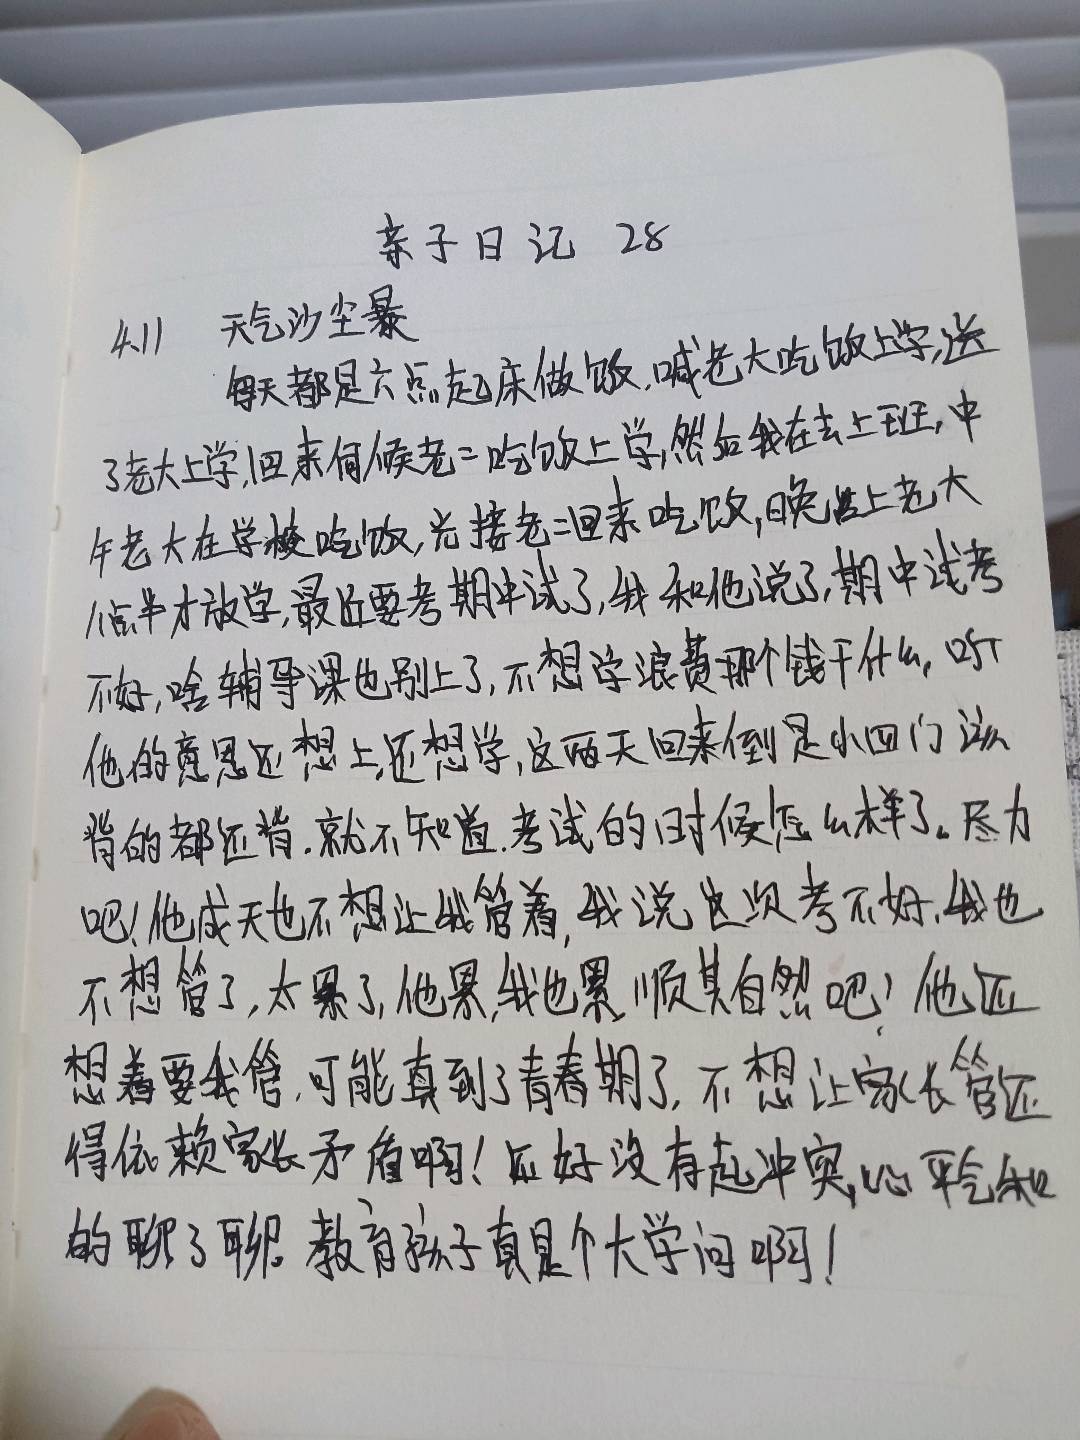 亲子日记 28
4.11 天气沙尘暴
每天都是六点起床做饭,喊老大吃饭上学,送
了老大上学,回来伺候老二吃饭上学,然后我在去上班,中
午老大在学校吃饭,先接老二回来吃饭,晚上老大
八点半才放学,最近要考期中试了,我和他说了,期中试考
不好,啥辅导课也别上了,不想学浪费那个钱干什么,听
他的意思还想上,还想学,这两天回来倒是小四门该
背的都还背.就不知道.考试的时候怎么样了。尽力
吧!他成天也不想让我管着,我说这次考不好,我也
不想管了,太累了,他累,我也累,顺其自然吧!他还
想着要我管,可能真到了青春期了,不想让家长管还
得依赖家长矛盾啊!还好没有起冲突,心平气和
的聊了聊。教育孩子真是个大学问啊!